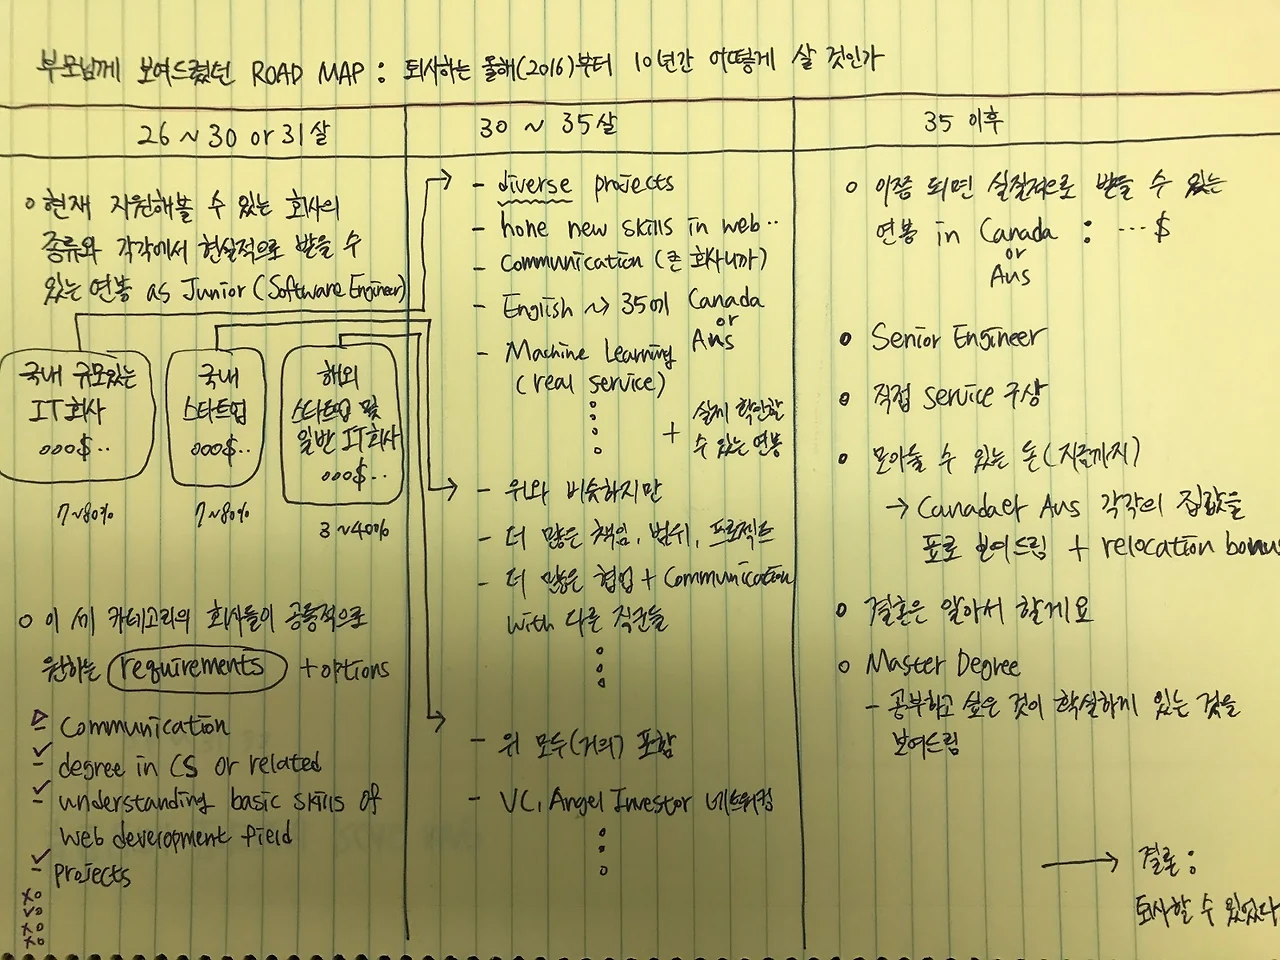 부모님께 보여드렸던 ROAD MAP : 퇴사하는 올해(2016)부터 10년간 어떻게 살 것인가
26 ~ 30 or 31살
○ 현재 지원해볼 수 있는 회사의
종류와 각각에서 현실적으로 받을 수
있는 연봉 as Junior (Software Engineer)
국내 규모있는
IT회사
000$..
7~80%
국내
스타트업
000$..
7~80%
해외
스타트업 및
일반 IT회사
000$..
3~40%
○ 이 세 카테고리의 회사들이 공통적으로
원하는 requirements + options
- Communication
✓ - degree in CS or related
✓ - understanding basic skills of
web development field
✓ - projects
x○
v○
x○
x○
30 ~ 35살
- diverse projects
- hone new skills in web..
- Communication (큰 회사니까)
- English ~> 35에 Canada
or
Aus
- Machine Learning
(real service)
+ 실제 확인할
수 있는 연봉
- 위와 비슷하지만
- 더 많은 책임, 범위, 프로젝트
- 더 많은 협업 + Communication
with 다른 직군들
- 위 모두(거의) 포함
- VC, Angel Investor 네트워킹
35 이후
○ 이쯤 되면 실질적으로 받을 수 있는
연봉 in Canada : ...$
or
Aus
○ Senior Engineer
○ 직접 service 구상
○ 모아둘 수 있는 돈(지금까지)
→ Canada와 Aus 각각의 집값을
표로 보여드림 + relocation bonus
○ 결혼은 알아서 할게요
○ Master Degree
- 공부하고 싶은 것이 확실하게 있는 것을
보여드림
→ 결론 :
퇴사할 수 있었다